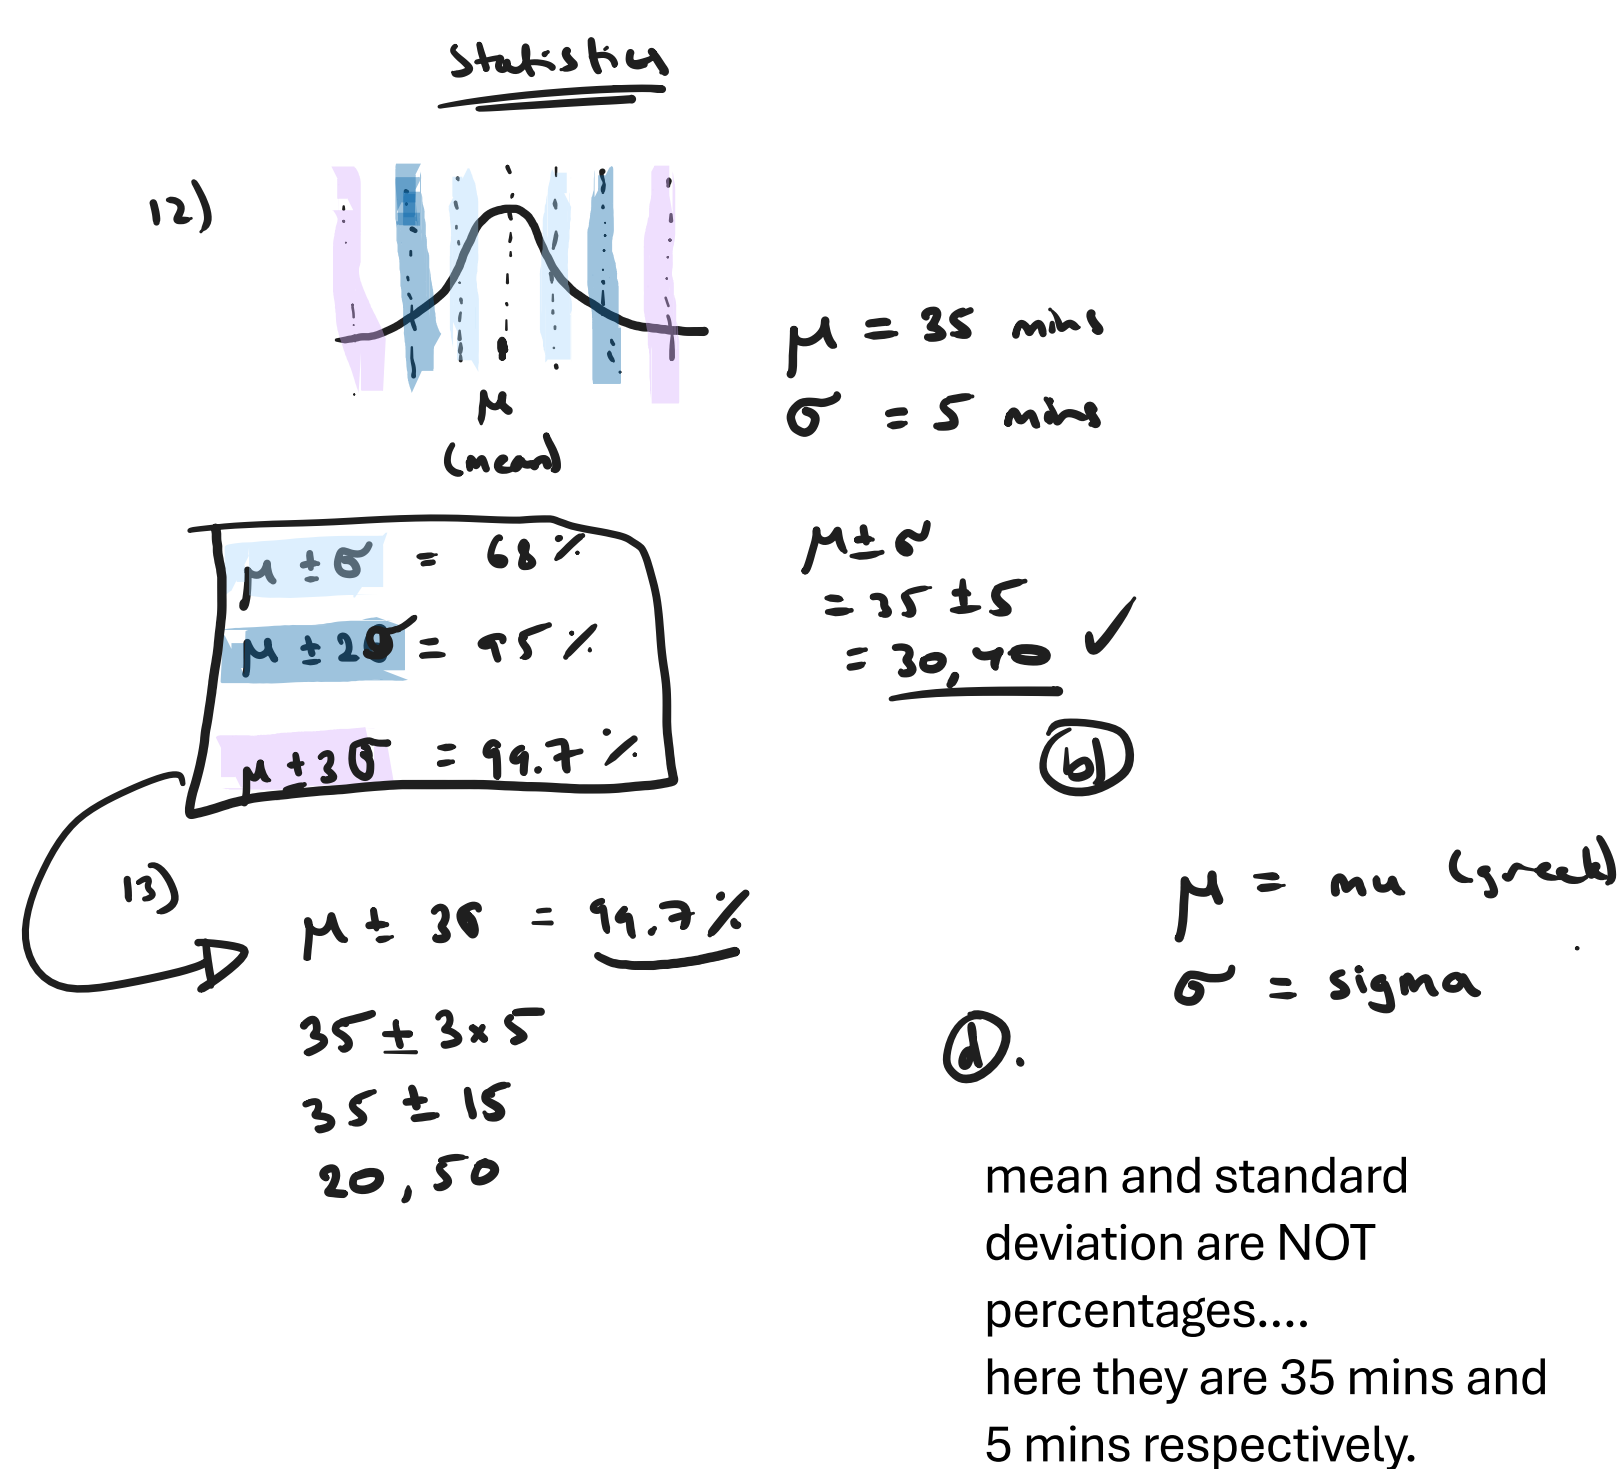 Statistics
12)
μ
(mean)
μ = 35 mins
σ = 5 mins
μ ± σ = 68 %
μ ± 2σ = 95 %
μ ± 3σ = 99.7 %
μ ± σ
= 35 ± 5
= 30, 40 ✓
(b)
13)
μ ± 3σ = 99.7 %
35 ± 3 × 5
35 ± 15
20, 50
(d).
μ = mu (greek)
σ = sigma
mean and standard
deviation are NOT
percentages....
here they are 35 mins and
5 mins respectively.